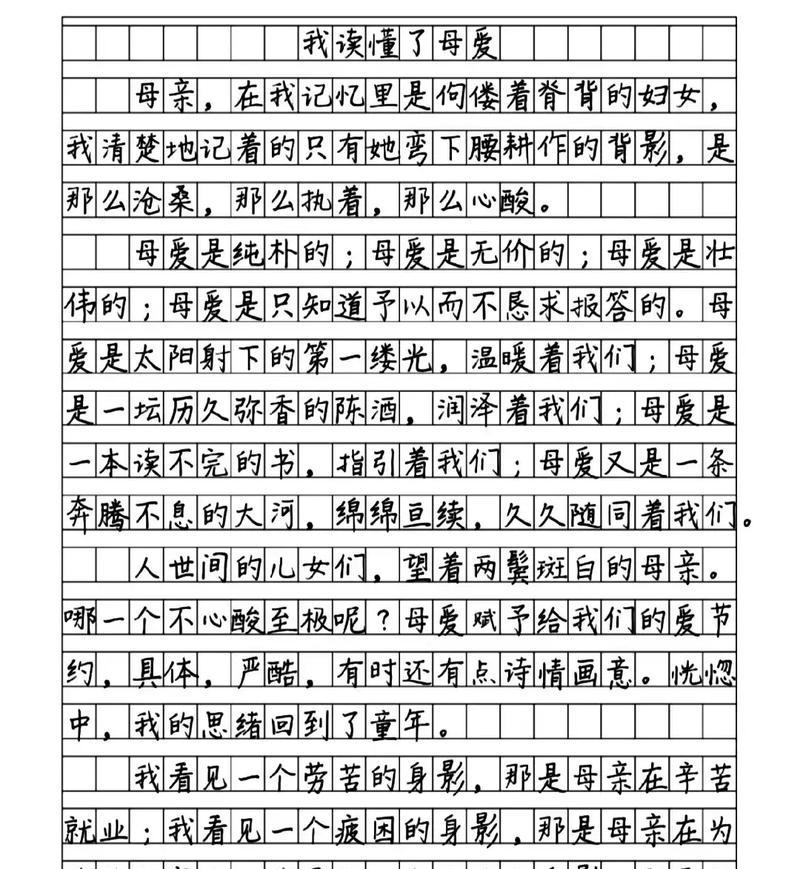 我读懂了母爱
母亲，在我记忆里是佝偻着脊背的妇女，
我清楚地记着的只有她弯下腰耕作的背影，是
那么沧桑，那么执着，那么心酸。
母爱是纯朴的；母爱是无价的；母爱是壮
伟的；母爱是只知道予以而不恳求报答的。母
爱是太阳射下的第一缕光，温暖着我们；母爱
是一坛历久弥香的陈酒，润泽着我们；母爱是
一本读不完的书，指引着我们；母爱又是一条
奔腾不息的大河，绵绵亘续，久久随同着我们。
人世间的儿女们，望着两鬓斑白的母亲。
哪一个不心酸至极呢？母爱赋予给我们的爱节
约，具体，严酷，有时还有点诗情画意。恍惚
中，我的思绪回到了童年。
我看见一个劳苦的身影，那是母亲在辛苦
就业；我看见一个疲困的身影，那是母亲在为